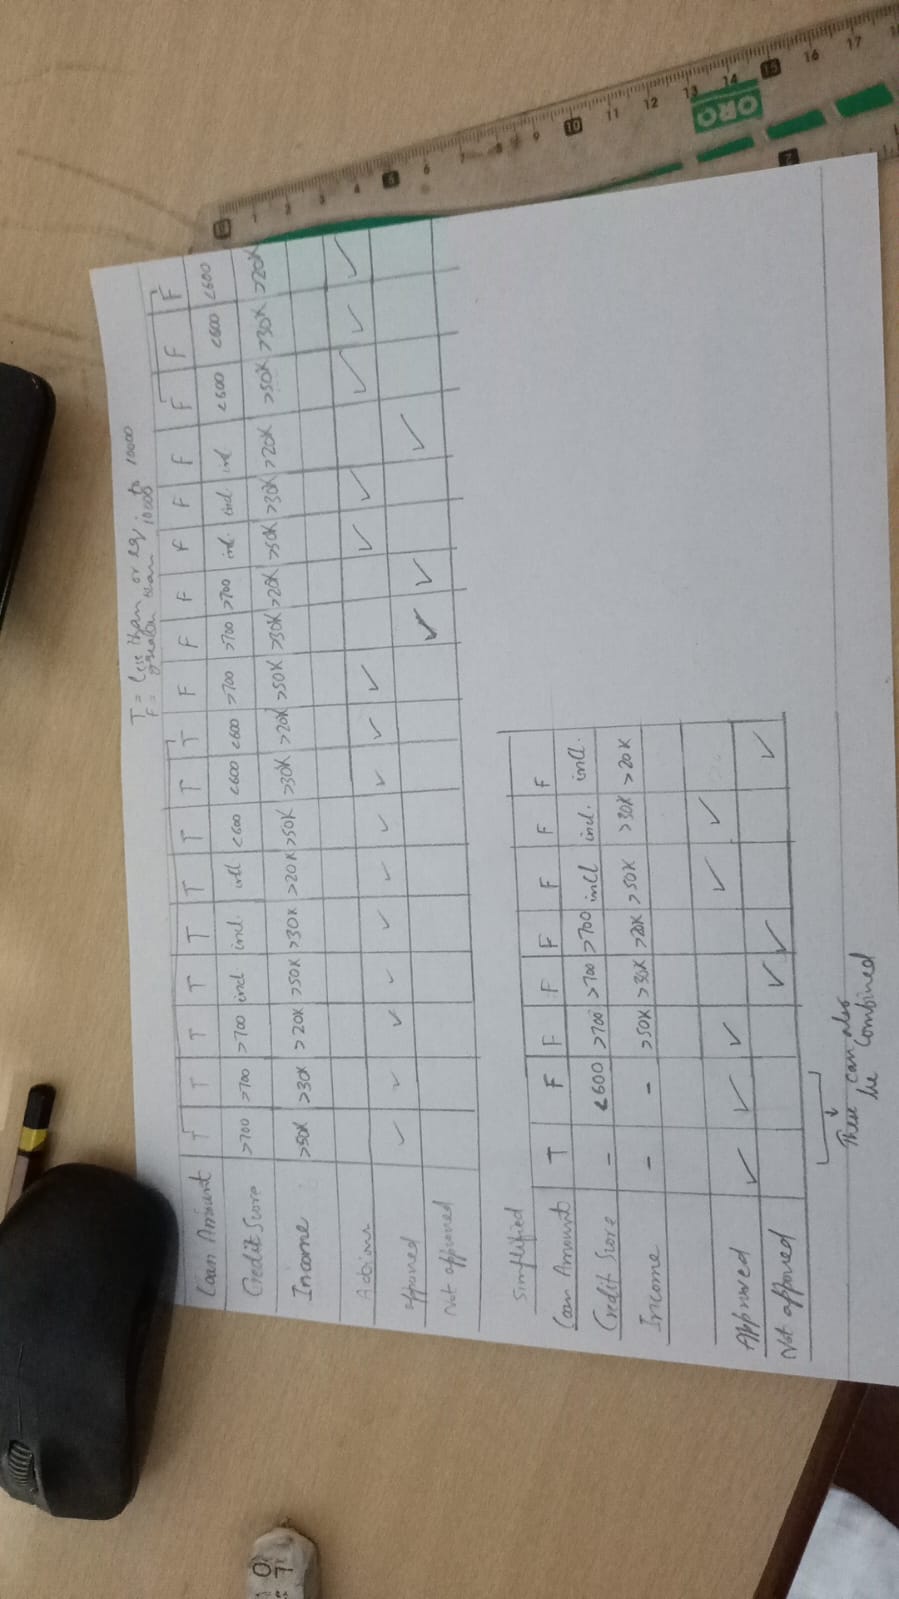 T = less than or eq. to 10000
F = greater than 10000
Loan Amount T T T T T T T T T F F F F F F F F F
Credit Score >700 >700 >700 incl incl. incl <600 <600 <600 >700 >700 >700 incl. incl. incl <600 <600 <600
Income >50K >30K >20K >50K >30K >20K >50K >30K >20K >50K >30K >20K >50K >30K >20K >50K >30K >20K
Actions
approved ✓ ✓ ✓ ✓ ✓ ✓ ✓ ✓ ✓ ✓ ✓ ✓ ✓ ✓ ✓
Not approved ✓ ✓ ✓
Simplified
Loan Amount T F F F F F F F
Credit Score - <600 >700 >700 >700 incl incl. incl.
Income - - >50K >30K >20K >50K >30K >20K
Approved ✓ ✓ ✓ ✓ ✓
Not approved ✓ ✓ ✓
These can also
be combined
1 2 3 4 5 6 7 8 9 10 11 12 13 14 15 16 17
ORO